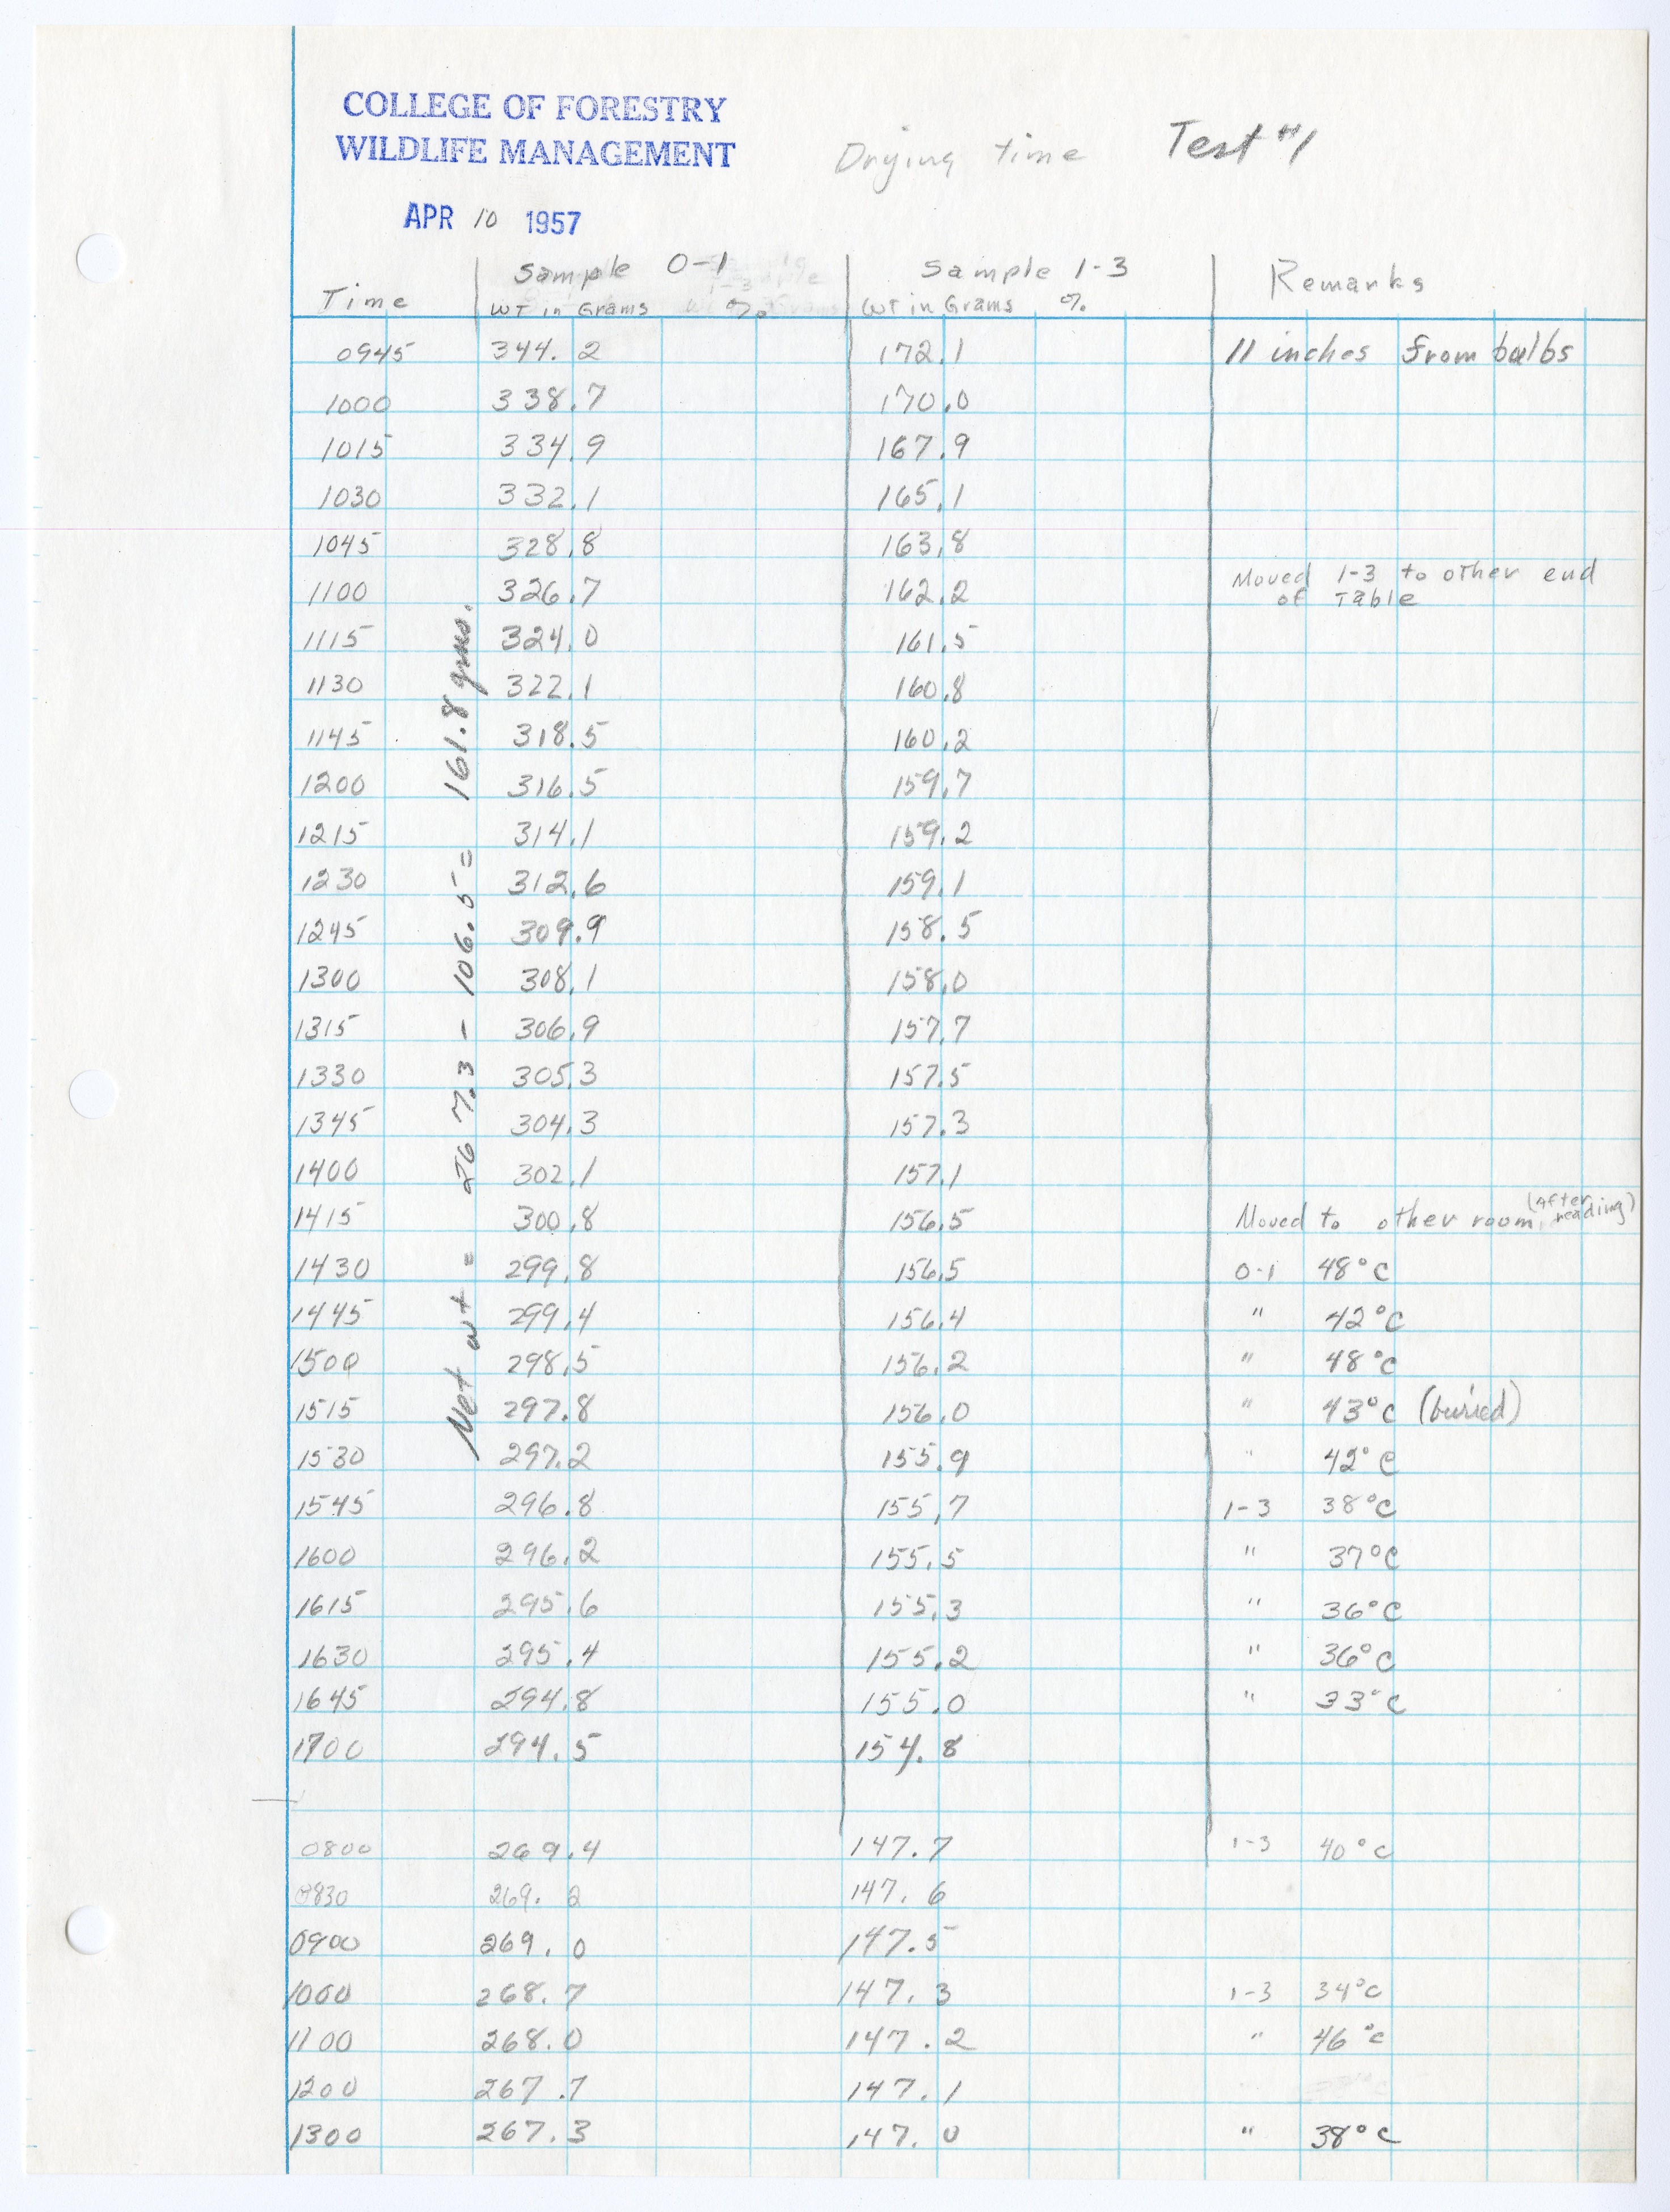 COLLEGE OF FORESTRY
WILDLIFE MANAGEMENT
Drying time Test #1
APR 10 1957
Sample 0-1 Sample 1-3 Remarks
Time WT in Grams % WT in Grams %
0945 344.2 172.1 11 inches from bulbs
1000 338.7 170.0
1015 334.9 167.9
1030 332.1 165.1
1045 328.8 163.8
1100 326.7 162.2 Moved 1-3 to other end of Table
1115 324.0 161.5
1130 322.1 160.8
1145 318.5 160.2
1200 316.5 159.7
1215 314.1 159.2
1230 312.6 159.1
1245 309.9 158.5
1300 308.1 158.0
1315 306.9 157.7
1330 305.3 157.5
1345 304.3 157.3
1400 302.1 157.1
1415 300.8 156.5 Moved to other room (after reading)
1430 299.8 156.5 0-1 48°C
1445 299.4 156.4 " 42°C
1500 298.5 156.2 " 48°C
1515 297.8 156.0 " 43°C (buried)
1530 297.2 155.9 " 42°C
1545 296.8 155.7 1-3 38°C
1600 296.2 155.5 " 37°C
1615 295.6 155.3 " 36°C
1630 295.4 155.2 " 36°C
1645 294.8 155.0 " 33°C
1700 294.5 154.8
0800 269.4 147.7 1-3 40°C
0830 269.2 147.6
0900 269.0 147.5
1000 268.7 147.3 1-3 34°C
1100 268.0 147.2 " 46°C
1200 267.7 147.1
1300 267.3 147.0 " 38°C
Net wt = 267.3 - 106.5 = 161.8 gms.